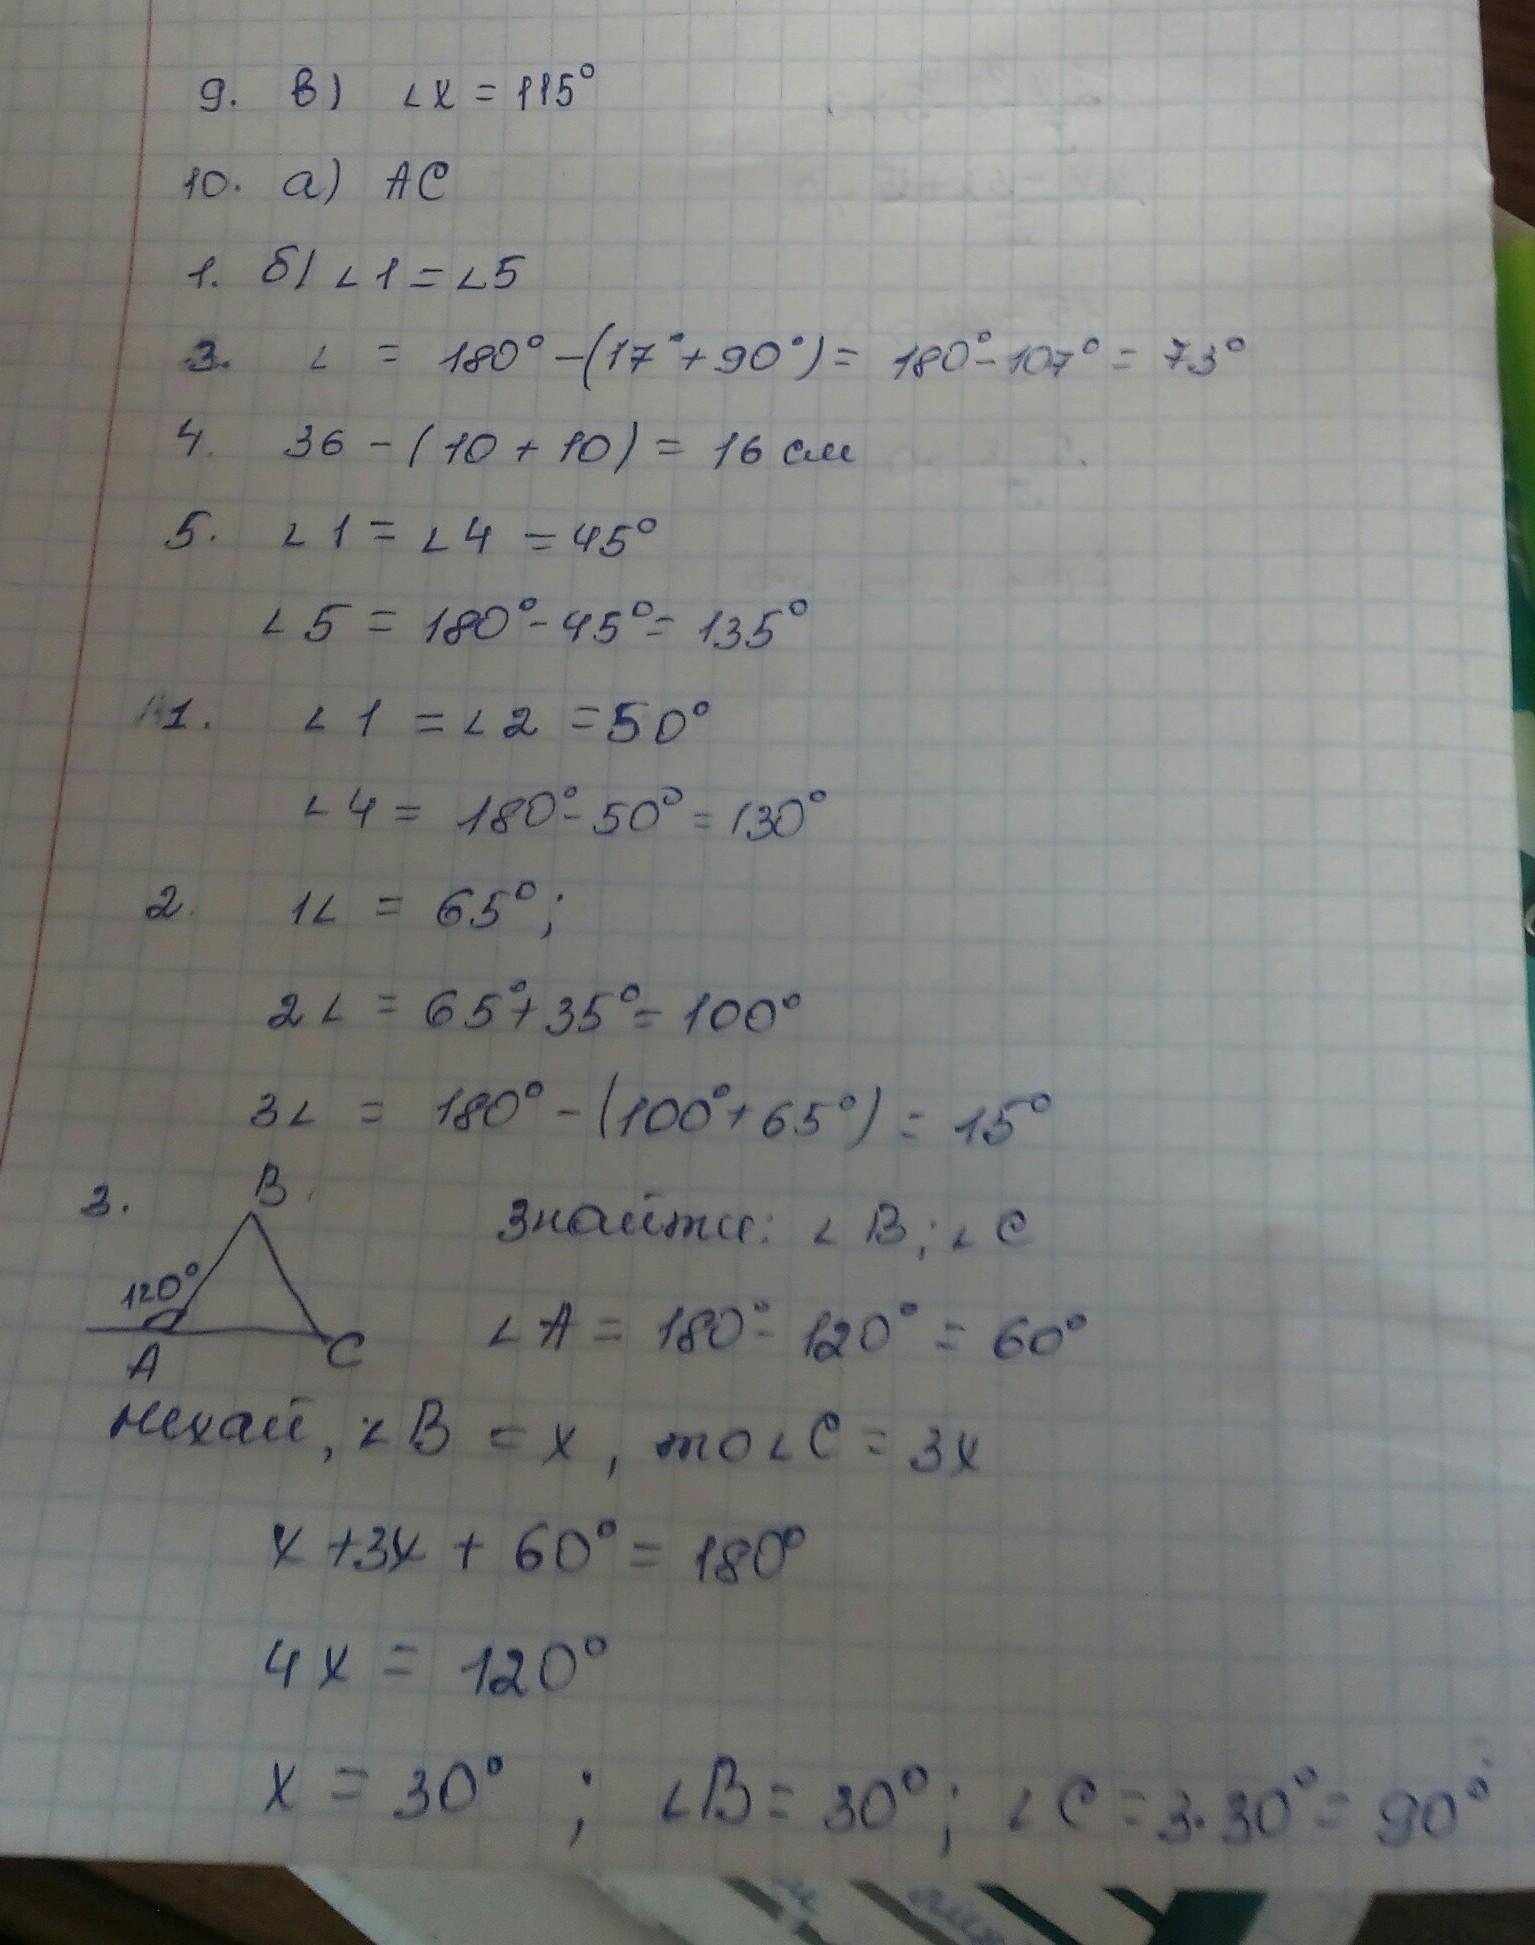 9. в) ∠x = 115°
10. а) AC
1. б) ∠1 = ∠5
3. ∠ = 180° - (17° + 90°) = 180° - 107° = 73°
4. 36 - (10 + 10) = 16 см
5. ∠1 = ∠4 = 45°
∠5 = 180° - 45° = 135°
1. ∠1 = ∠2 = 50°
∠4 = 180° - 50° = 130°
2. 1∠ = 65°;
2∠ = 65° + 35° = 100°
3∠ = 180° - (100° + 65°) = 15°
3. B
120°
A C
Знайти: ∠B; ∠C
∠A = 180° - 120° = 60°
Нехай, ∠B = x, то ∠C = 3x
x + 3x + 60° = 180°
4x = 120°
x = 30° ; ∠B = 30°; ∠C = 3·30° = 90°